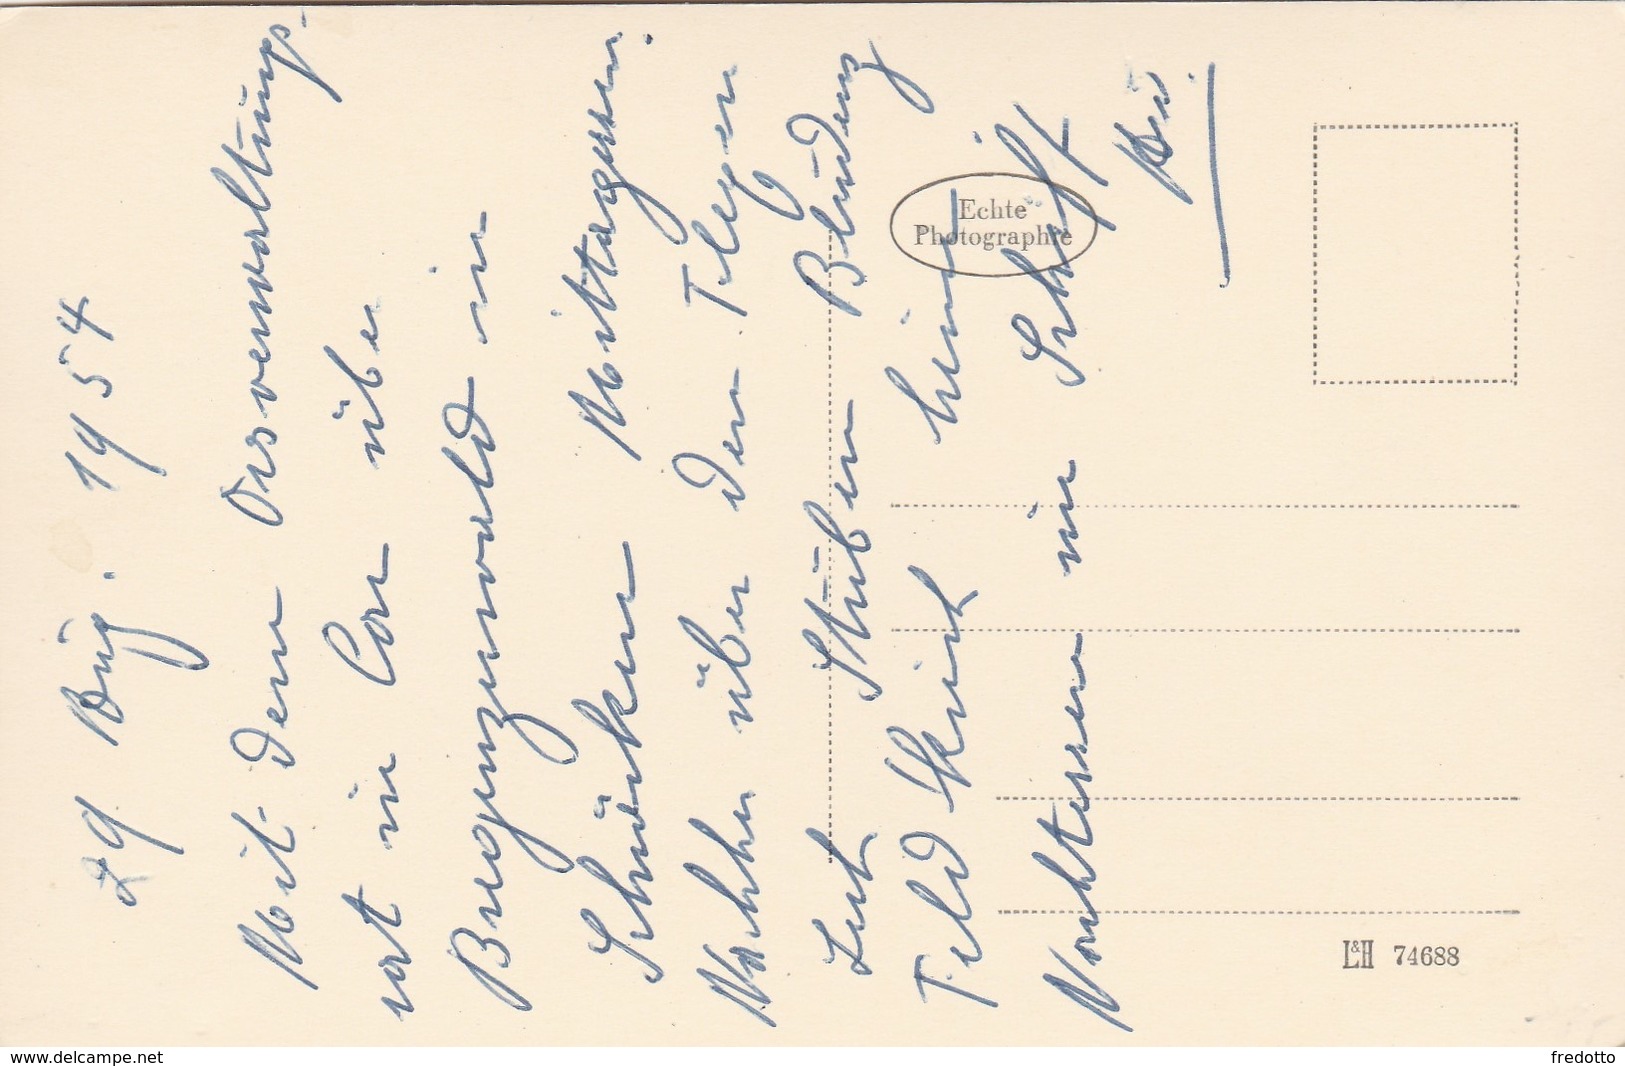 29 Aug. 1954
Mit dem Ortsverwaltungs-
rat im Car über
Bregenzerwald in
Schröcken Mittagessen.
Nachher über den Flexen
Lech Stuben Bludenz
Feldkirch heim.
Nachtessen im Schäfli
Echte
Photographie
L&H 74688
www.delcampe.net
fredotto